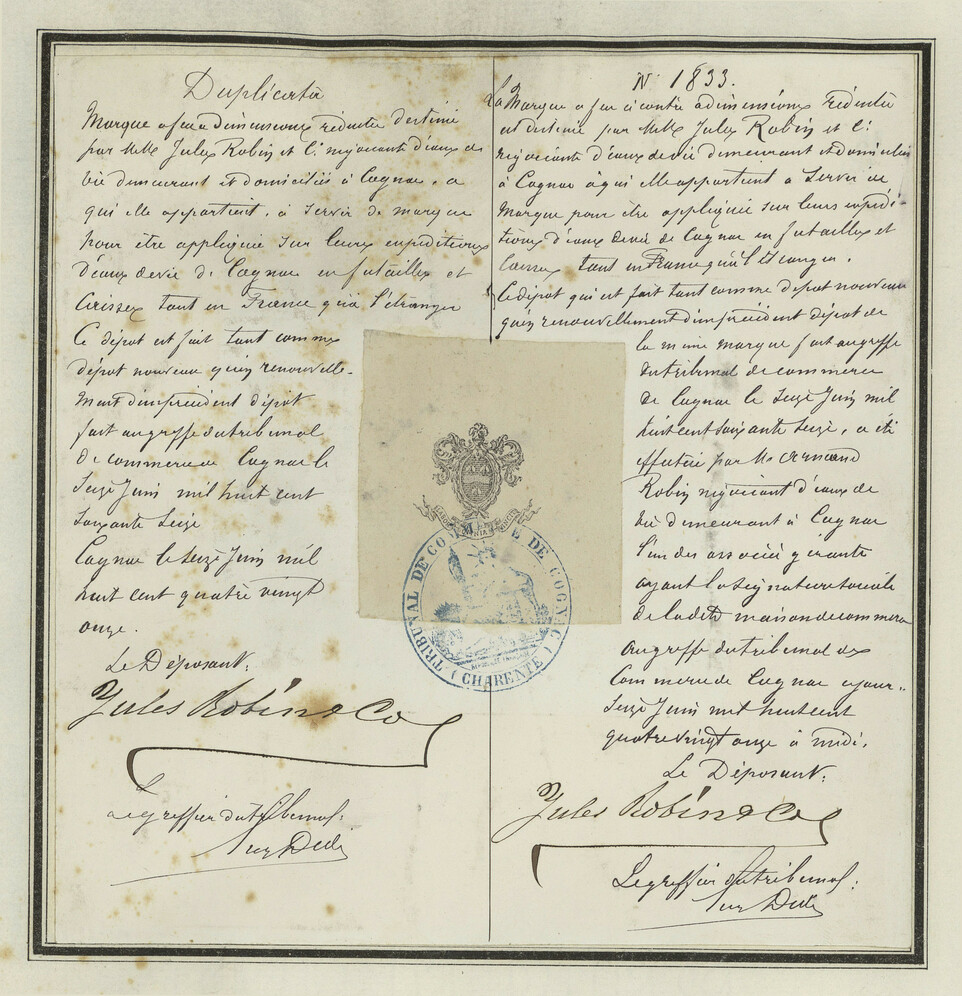 Duplicata
Marque a feu a dimensions réduites destiné
par M.M. Jules Robin et Cie négociants d'eaux de
vie demeurant et domiciliés à Cognac, a
qui elle appartient, à servir de marque
pour être appliquée sur leurs expéditions
d'eaux de vie de Cognac en futailles et
Caisses tant en France qu'à l'étranger
Ce dépot est fait tant comme
dépot nouveau qu'en renouvelle-
ment d'un précédent dépot
fait au greffe du tribunal
de commerce de Cognac le
Seize Juin mil huit cent
soixante Seize
Cognac le seize Juin mil
huit cent quatre vingt
onze.
Le Déposant:
Jules Robin & Co
Le greffier du tribunal:
N° 1833.
La Marque a feu ci contre a dimensions réduites
est destinée par M.M. Jules Robin et Cie
négociants d'eaux de vie demeurant et domiciliés
à Cognac à qui elle appartient a servir de
Marque pour être appliquée sur leurs expédi-
tions d'eaux de vie de Cognac en futailles et
Caisses tant en France qu'à l'étranger.
Ce dépot qui est fait tant comme dépot nouveau
qu'en renouvellement d'un précédent dépot de
la même marque fait au greffe
du tribunal de commerce
de Cognac le Seize Juin mil
huit cent soixante Seize, a été
effectuée par Mr Armand
Robin négociant d'eaux de
vie demeurant à Cognac
l'un des associés gérants
ayant la signature sociale
de la dite maison de commerce
au greffe du tribunal de
Commerce de Cognac ce jour..
Seize Juin mil huit cent
quatre vingt onze à midi.
Le Déposant:
Jules Robin & Co
Le greffier du tribunal:
TRIBUNAL DE COMMERCE DE COGNAC
(CHARENTE)